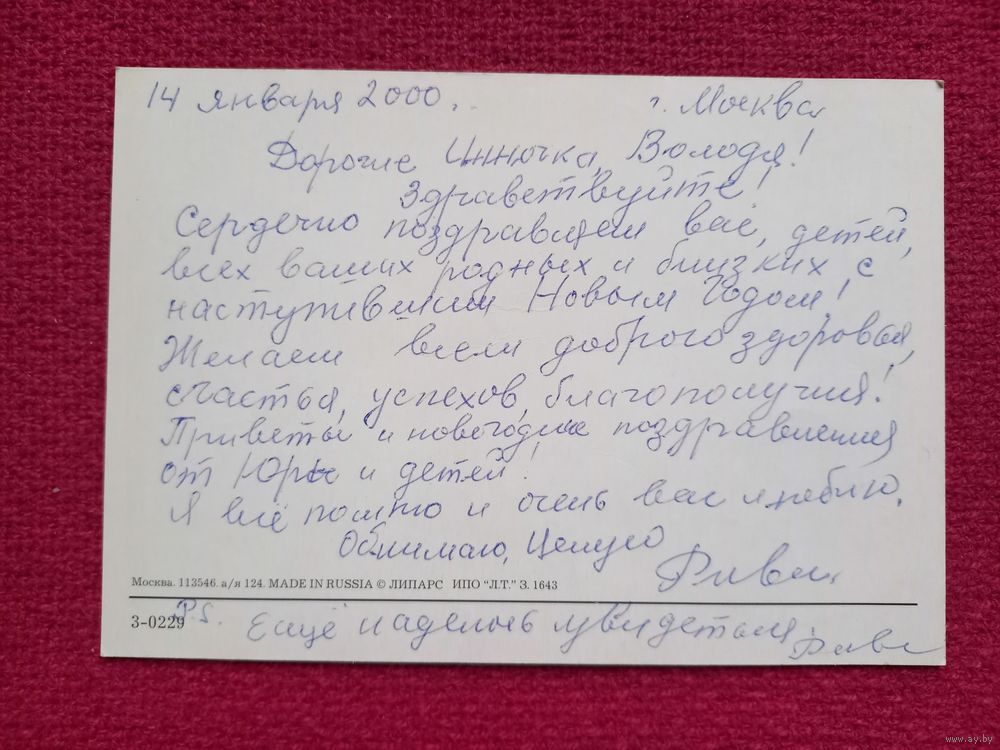 14 января 2000. г. Москва
Дорогие Инночка, Володя!
Здравствуйте!
Сердечно поздравляем вас, детей,
всех ваших родных и близких с
наступившим Новым Годом!
Желаем всем доброго здоровья,
счастья, успехов, благополучия!
Приветы и новогодние поздравления
от Юры и детей!
Я всё помню и очень вас люблю.
Обнимаю, Целую
Москва. 113546. а/я 124. MADE IN RUSSIA © ЛИПАРС ИПО "Л.Т." З. 1643
3-0229
P.S. Ещё надеюсь увидеться.
www.ay.by